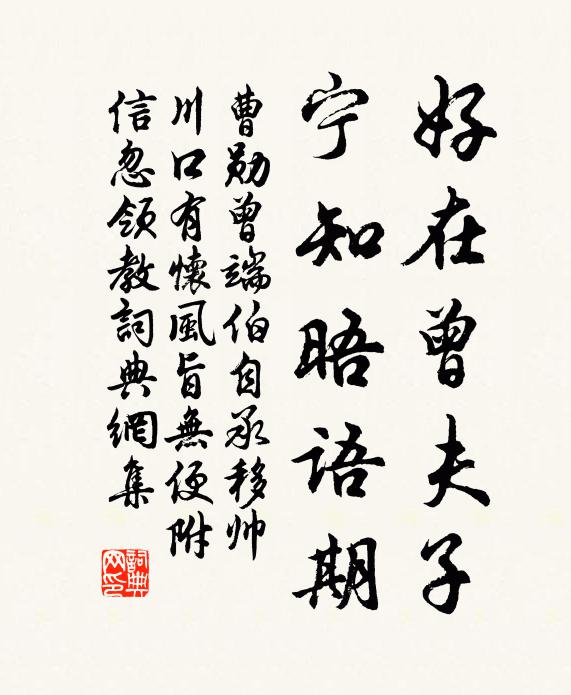 好在曾夫子
宁知晤语期
曹勋曾端伯自承移帅
川口有懷風旨無便附
信忽领教詞典網集
詞典网印